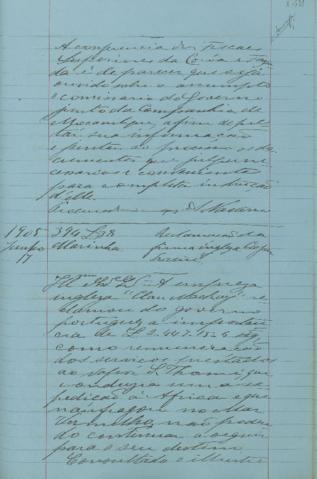 A conferencia dos Fiscaes
Superiores da Corôa e Fazen
da é de parecer que seja
ouvido sobre o assumpto
o comissario do Governo
junto da Companhia de
Moçambique, a fim de pres
tar sua informação
e juntar ao processo os do
cumentos que julgar ne
cessarios e convenientes
para completa instrucção
d'elle.
1905 394 L38 Reclamação da
Junho Marinha firma ingleza
17
Ill.mo Ex.mo Sr. A empreza
ingleza "Clan Mackay" re
clamou do governo
portuguez a importan
cia de £
como remuneração
dos serviços prestados
ao vapor S. Thomé que
conduzia uma ex
pedição á Africa e que
naufragou no Mar
Vermelho, não poden
do continuar a seguir
para o seu destino
Consultado o illustre